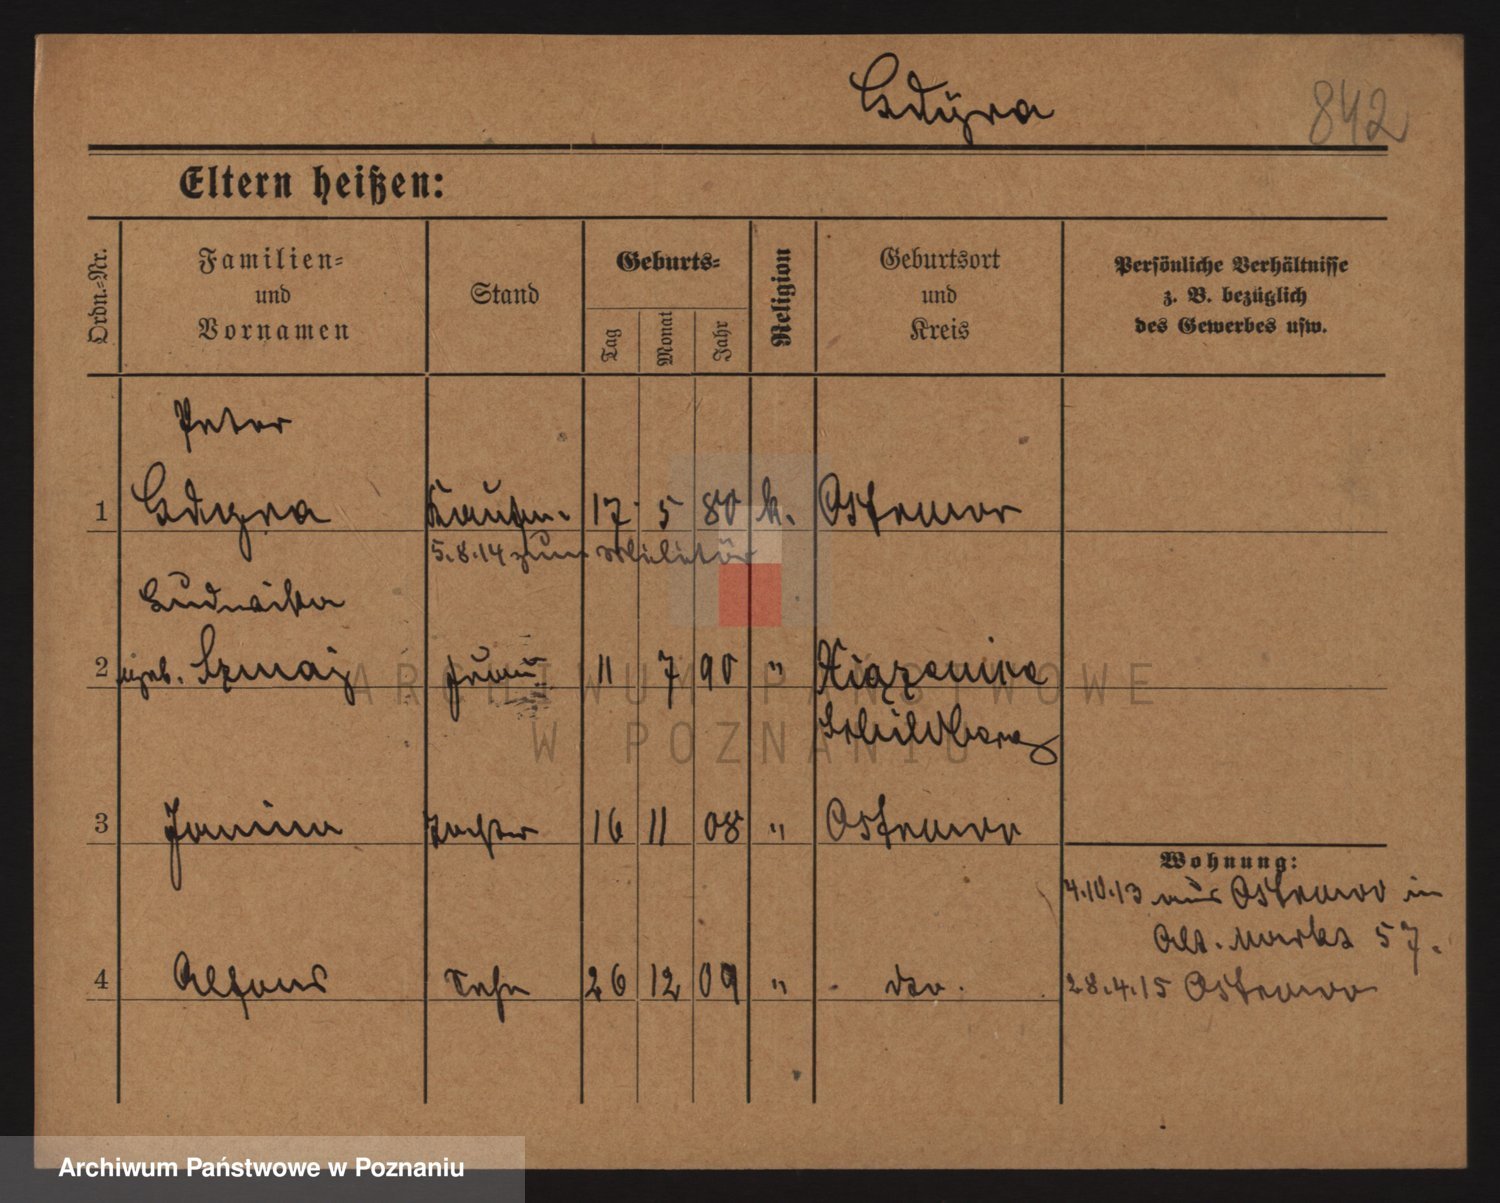 842
Eltern heißen:
Ordn.-Nr.
Familien-
und
Vornamen
Stand
Geburts-
Tag
Monat
Jahr
Religion
Geburtsort
und
Kreis
Persönliche Verhältnisse
z. B. bezüglich
des Gewerbes usw.
Peter
1 Kaufm. 17 5 80 k. Ostrowo
5.8.14 zum Militär
Ludwika
2 geb. Szmaj Frau 11 7 90 "
Schildberg
3 Janina Tochter 16 11 08 " Ostrowo
Wohnung:
4.10.13 aus Ostrowo in
Alt. Markt 57.
4 Alfons Sohn 26 12 09 " dto.
28.4.15 Ostrowo
ARCHIWUM PAŃSTWOWE
W POZNANIU
Archiwum Państwowe w Poznaniu